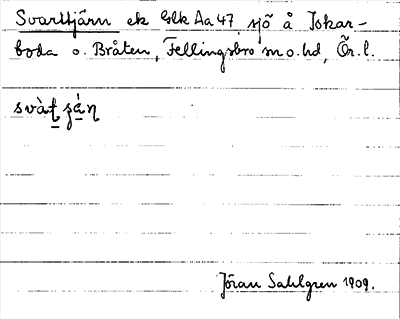 Svarttjärn ek Glk Aa 47 sjö å Jokar-
boda o. Bråten, Fellingsbro sn o. hd, Ör. l.
Jöran Sahlgren 1909.